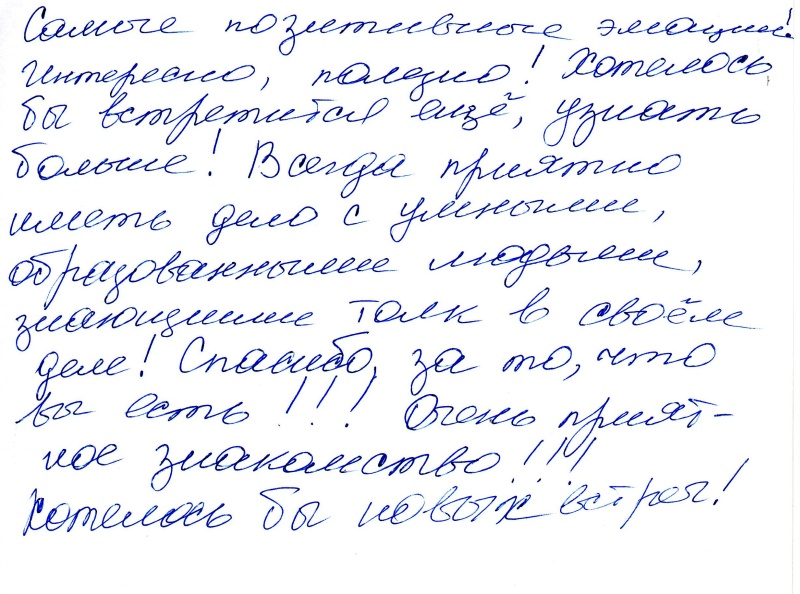 Самые позитивные эмации!
Интересно, полезно! Хотелось
бы встретится ещё, узнать
больше! Всегда приятно
иметь дело с умными,
образованными людьми,
знающими толк в своём
деле! Спасибо, за то, что
вы есть!!! Очень прият-
ное знакомство!!!
Хотелось бы новых встреч!